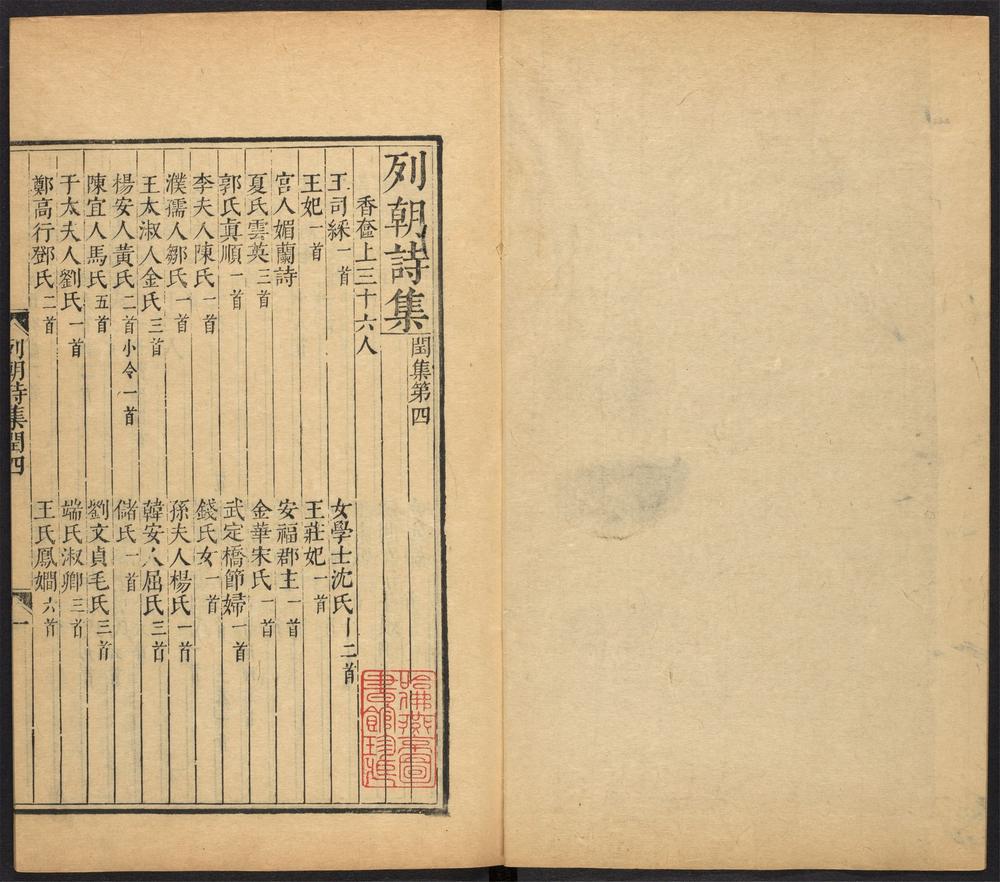 列朝詩集 閏集第四
香奩上三十六人
王司綵一首 女學士沈氏一二首
王妃一首 王莊妃一首
宮人媚蘭詩 安福郡主一首
夏氏雲英三首 金華宋氏一首
郭氏真順一首 武定橋節婦一首
李夫人陳氏一首 錢氏女一首
濮孺人鄒氏一首 孫夫人楊氏一首
王太淑人金氏三首 韓安人屈氏三首
楊安人黃氏二首小令一首 儲氏一首
陳宜人馬氏五首 劉文貞毛氏三首
于太夫人劉氏一首 端氏淑卿三首
鄭高行鄧氏二首 王氏鳳嫺六首
列朝詩集閏四 一
哈佛燕京圖書館珍藏